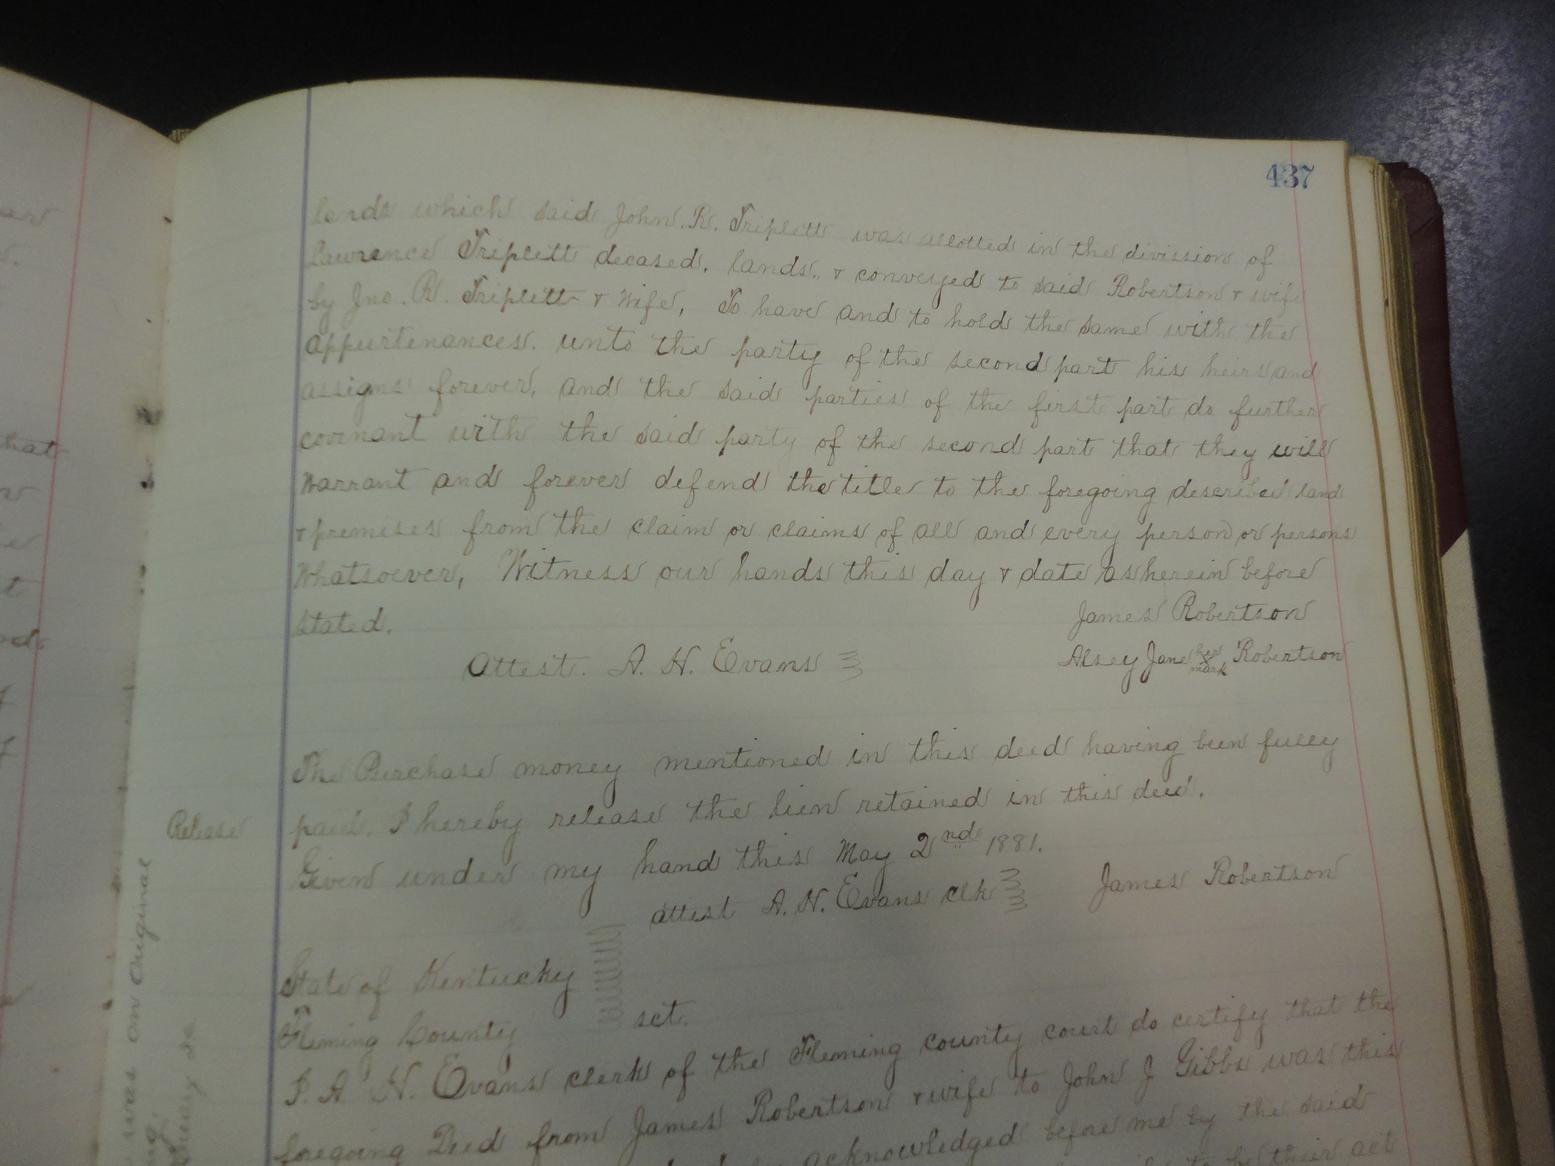 437
lands which said John. R. Triplett was allotted in the division of
Lawrence Triplett decased, lands, & conveyed to said Robertson & wife
by Jno. R. Triplett & Wife, To have and to hold the same with the
appurtenances. unto the party of the second part his heirs and
assigns forever, and the said parties of the first part do further
covenant with the said party of the second part that they will
Warrant and forever defend the title to the foregoing described land
& premises from the claim or claims of all and every person or persons
Whatsoever, Witness our hands this day & date as herein before
stated.
James Robertson
Attest. A. H. Evans
Alsey Jane her x mark Robertson
The Purchase money mentioned in this deed having been fully
Release
paid. I hereby release the lien retained in this deed.
Given under my hand this May 2nd 1881.
attest A. H. Evans clk
James Robertson
State of Kentucky
Fleming County sct.
I. A H. Evans clerk of the Fleming county court do certify that the
foregoing Deed from James Robertson & wife to John J Gibbs was this
acknowledged before me by the said
to be their act
was on original